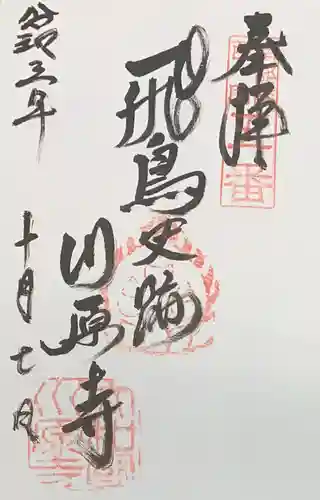 奉拝
飛鳥史跡
川原寺
令和三年
十月七日